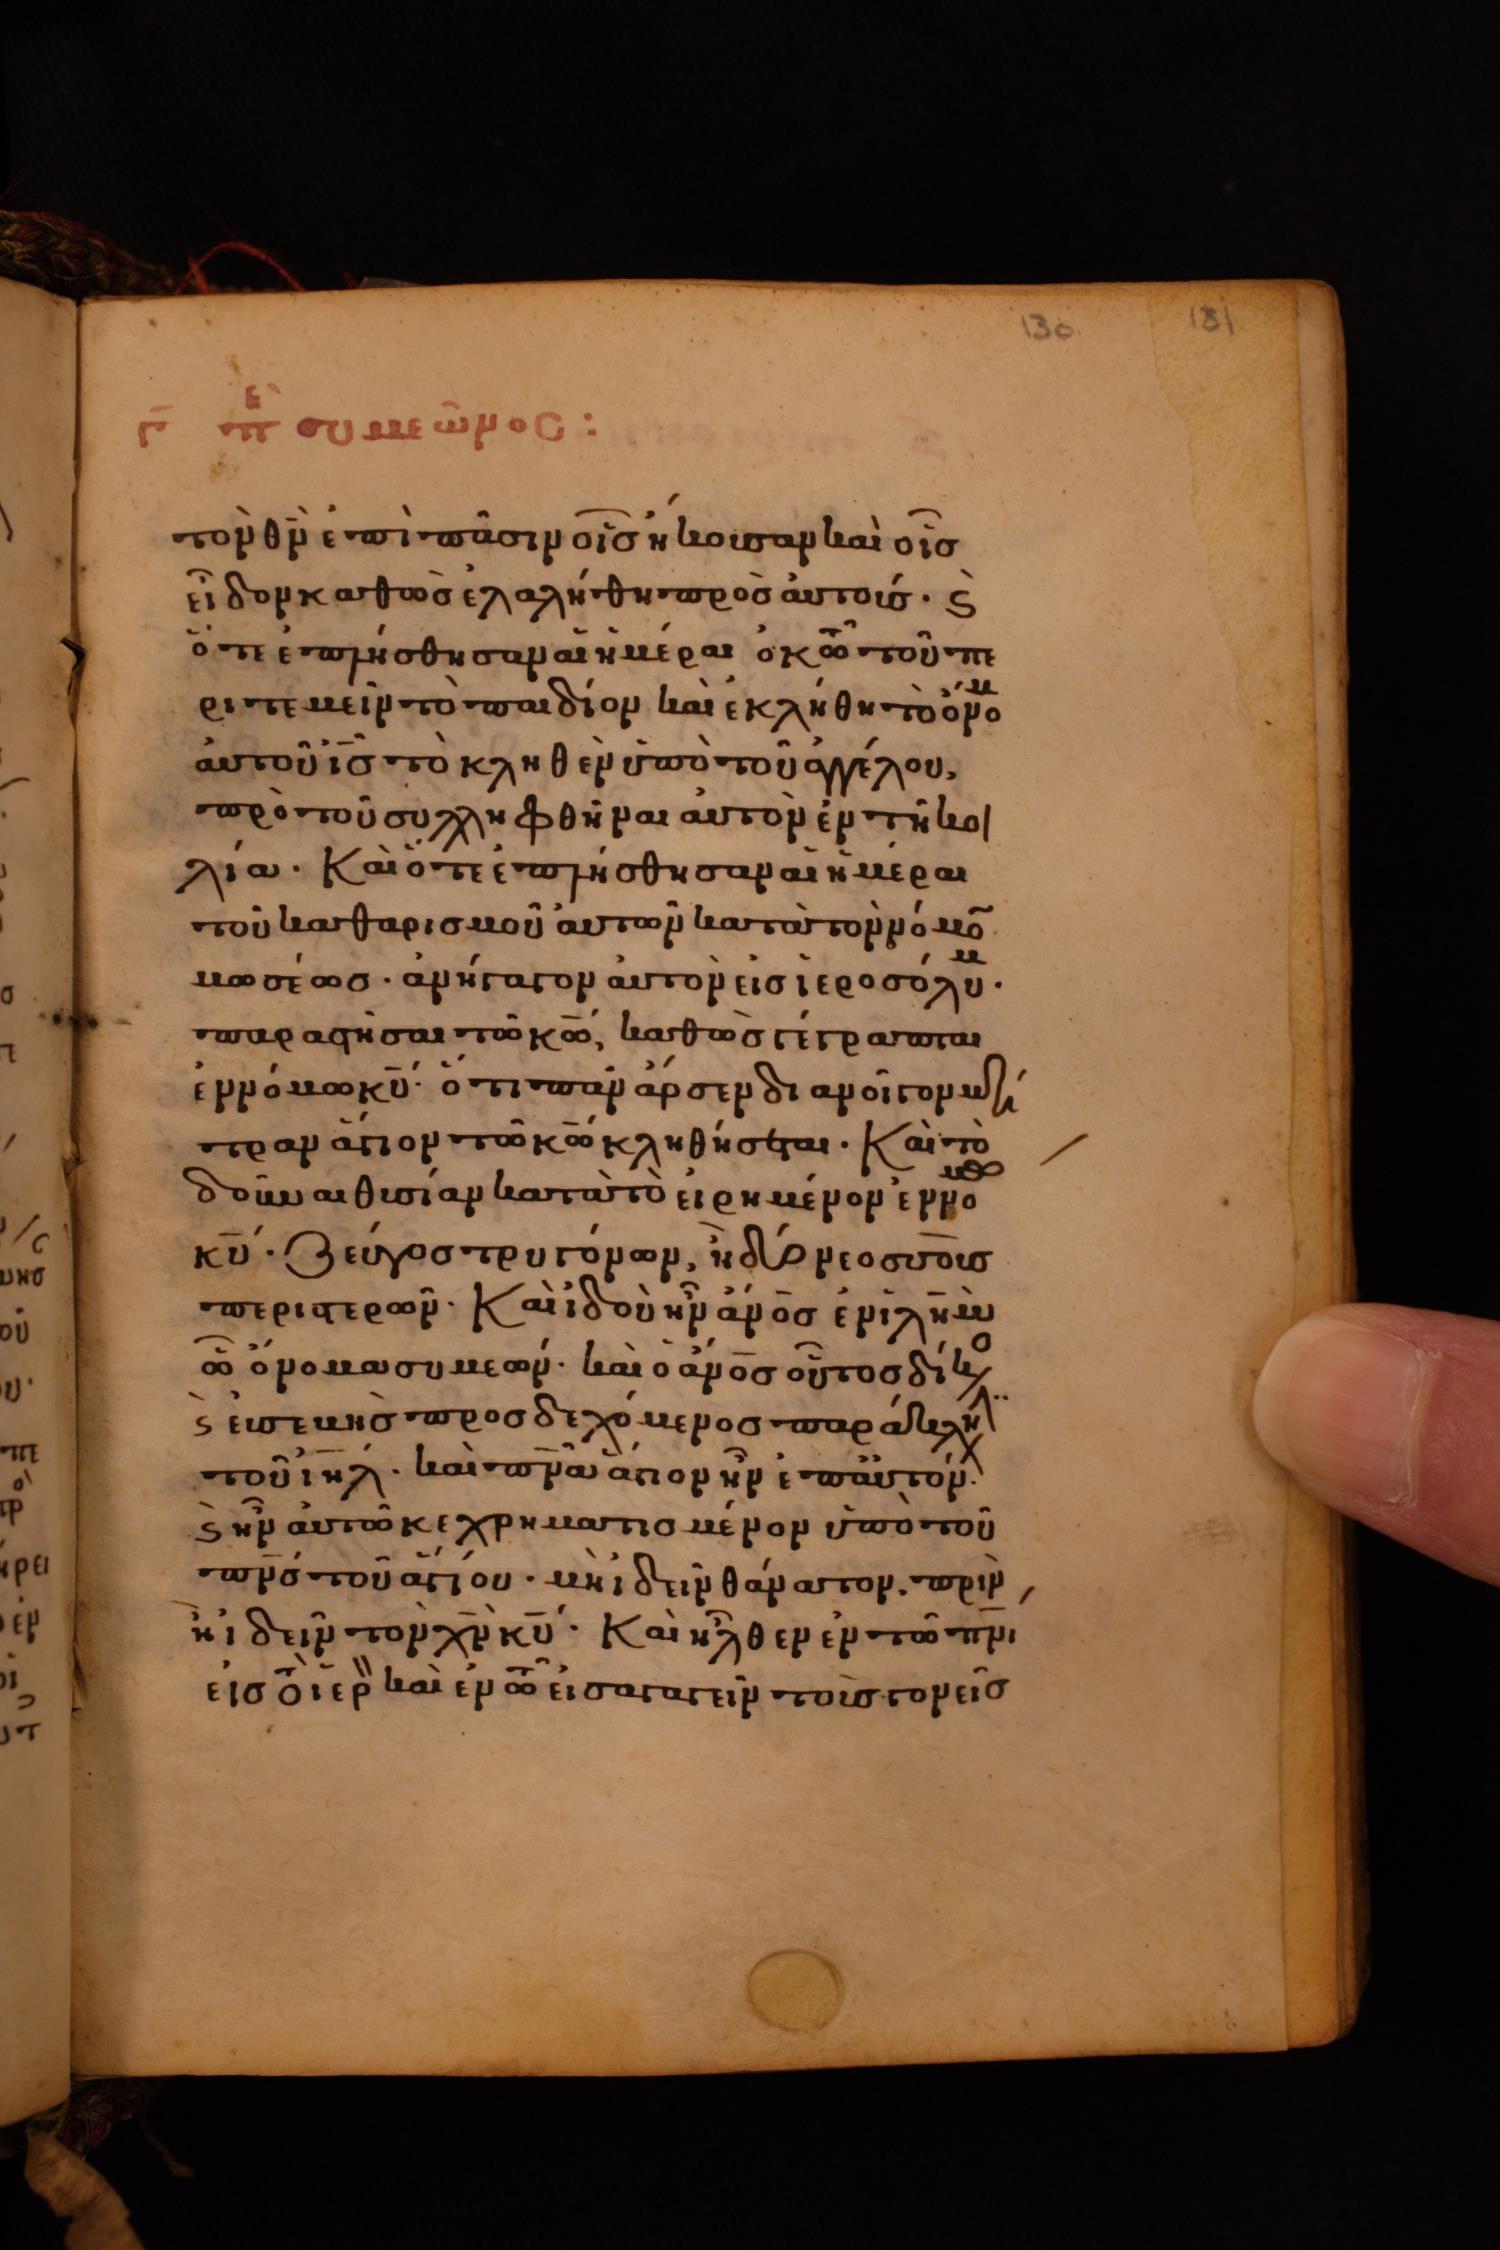 130 131
γ̄ πε̣ συμεῶνος :
τὸν θ̄ν̀ ἐπὶ πᾶσιν οἷσ ἤκουσαν καὶ οἷσ
εἶδον καθὼσ ἐλαλήθη πρὸσ αὐτούσ · ϛ̀
ὅτε ἐπλήσθησαν αἱ ἡμέραι ὀκτὼ τοῦ πε
ριτεμεῖν τὸ παιδίον καὶ ἐκλήθη τὸ ὄνομ
αὐτοῦ ῑσ̄ τὸ κληθὲν ὑπὸ τοῦ ἀγγέλου,
πρὸ τοῦ συλληφθῆναι αὐτὸν ἐν τῆ κοι
λία · Καὶ ὅτε ἐπλήσθησαν αἱ ἡμέραι
τοῦ καθαρισμοῦ αὐτῶν κατὰ τὸν νόμο
μωσέωσ · ἀνήγαγον αὐτὸν εἰσ ἱεροσόλυμ ·
παραστῆσαι τῶ κ̄ω̄, καθὼσ γέγραπται
ἐν νόμω κ̄ῡ · ὅτι πᾶν ἄρσεν διανοῖγον μή
τραν ἅγιον τῶ κ̄ω̄ κληθήσεται · Καὶ τὸ
δοῦναι θυσίαν κατὰ τὸ εἰρημένον ἐν νόμω
κ̄ῡ · Ζεύγοσ τρυγόνων, ἢ δύο νεοσσοὺσ
περιστερῶν · Καὶ ἰδοὺ ἦν ἄν̄οσ ἐν ῑλ̄η̄μ ὦ
ὧ ὄνομα συμεών · καὶ ὁ ἄν̄οσ οὗτοσ δίκαιο
ϛ̀ εὐσεβὴσ προσδεχόμενοσ παράκλη
τοῦ ῑη̄λ̄ · καὶ π̄ν̄α ἅγιον ἦν ἐπ αὐτόν ·
ϛ̀ ἦν αὐτῶ κεχρηματισμένον ὑπὸ τοῦ
π̄ν̄σ τοῦ ἁγίου · μὴ ἰδεῖν θάνατον, πρὶν
ἢ ἰδεῖν τὸν χ̄ν̄ κ̄ῡ · Καὶ ἦλθεν ἐν τῶ π̄ν̄ι
εἰσ τὸ ἱερὸ καὶ ἐν τῶ εἰσαγαγεῖν τοὺσ γονεῖσ